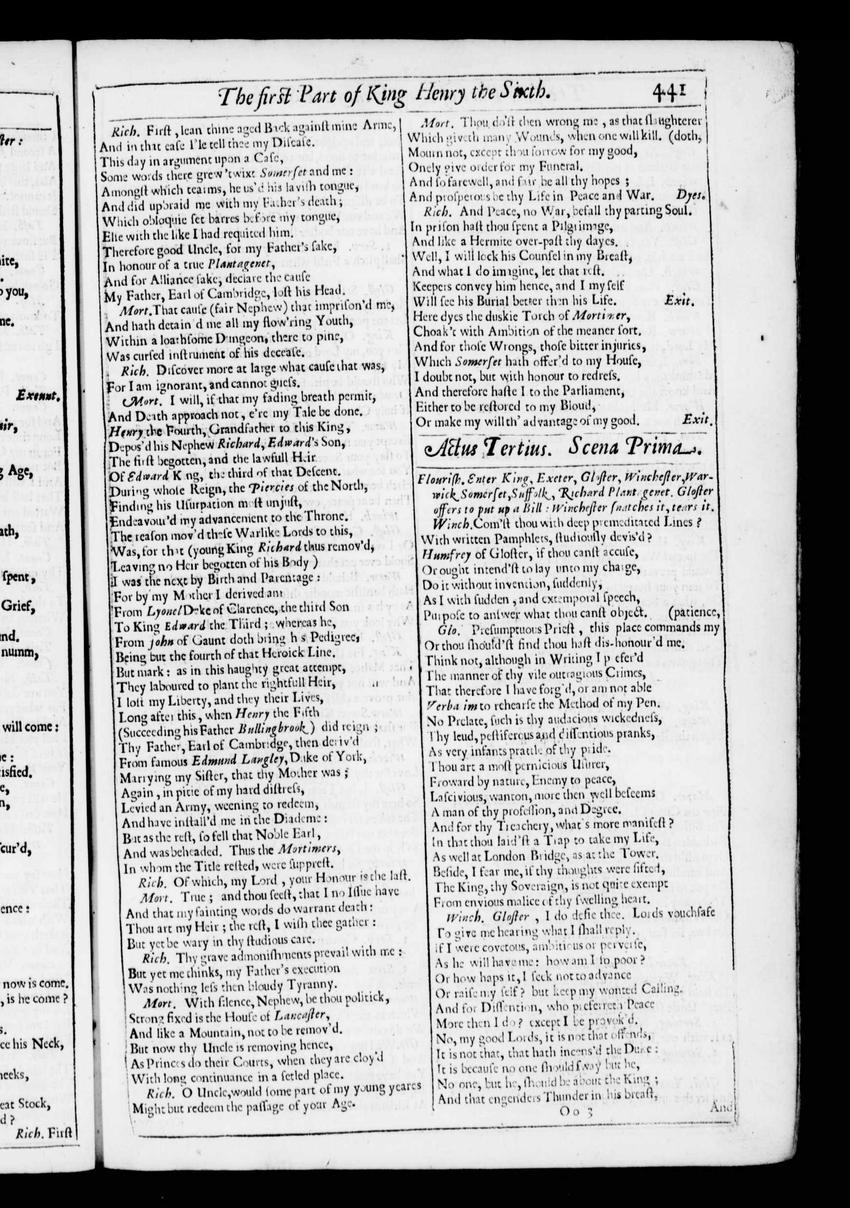 ster:
ite,
you,
ne.
Exeunt.
air,
g Age,
ath,
spent,
Grief,
and.
numm,
will come:
ne:
isfied.
e,
n,
scur'd,
ence:
now is come.
, is he come?
s.
ce his Neck,
heeks,
eat Stock,
d?
Rich. First
The first Part of King Henry the Sixth. 441
Rich. First, lean thine aged Back against mine Arme,
And in that ease I'le tell thee my Disease.
This day in argument upon a Case,
Some words there grew 'twixt Somerset and me:
Amongst which tearms, he us'd his lavish tongue,
And did upbraid me with my Father's death;
Which obloquie set barres before my tongue,
Else with the like I had requited him.
Therefore good Uncle, for my Father's sake,
In honour of a true Plantagenet,
And for Alliance sake, declare the cause
My Father, Earl of Cambridge, lost his Head.
Mort. That cause (fair Nephew) that imprison'd me,
And hath detain'd me all my flow'ring Youth,
Within a loathsome Dungeon, there to pine,
Was cursed instrument of his decease.
Rich. Discover more at large what cause that was,
For I am ignorant, and cannot guess.
Mort. I will, if that my fading breath permit,
And Death approach not, e're my Tale be done.
Henry the Fourth, Grandfather to this King,
Depos'd his Nephew Richard, Edward's Son,
The first begotten, and the lawfull Heir
Of Edward King, the third of that Descent.
During whose Reign, the Piercies of the North,
Finding his Usurpation most unjust,
Endeavour'd my advancement to the Throne.
The reason mov'd these Warlike Lords to this,
Was, for that (young King Richard thus remov'd,
Leaving no Heir begotten of his Body)
I was the next by Birth and Parentage:
For by my Mother I derived am
From Lyonel Duke of Clarence, the third Son
To King Edward the Third; whereas he,
From John of Gaunt doth bring his Pedigree,
Being but the fourth of that Heroick Line.
But mark: as in this haughty great attempt,
They laboured to plant the rightfull Heir,
I lost my Liberty, and they their Lives,
Long after this, when Henry the Fifth
(Succeeding his Father Bullingbrook) did reign;
Thy Father, Earl of Cambridge, then deriv'd
From famous Edmund Langley, Duke of York,
Marrying my Sister, that thy Mother was;
Again, in pitie of my hard distress,
Levied an Army, weening to redeem,
And have install'd me in the Diademe:
But as the rest, so fell that Noble Earl,
And was beheaded. Thus the Mortimers,
In whom the Title rested, were supprest.
Rich. Of which, my Lord, your Honour is the last.
Mort. True; and thou seest, that I no Issue have
And that my fainting words do warrant death:
Thou art my Heir; the rest, I wish thee gather:
But yet be wary in thy studious care.
Rich. Thy grave admonishments prevail with me:
But yet me thinks, my Father's execution
Was nothing less then bloudy Tyranny.
Mort. With silence, Nephew, be thou politick,
Strong fixed is the House of Lancaster,
And like a Mountain, not to be remov'd.
But now thy Uncle is removing hence,
As Princes do their Courts, when they are cloy'd
With long continuance in a setled place.
Rich. O Uncle, would some part of my young yeares
Might but redeem the passage of your Age.
Mort. Thou do'st then wrong me, as that slaughterer
Which giveth many Wounds, when one will kill. (doth,
Mourn not, except thou sorrow for my good,
Onely give order for my Funeral.
And so farewell, and fair be all thy hopes;
And prosperous be thy Life in Peace and War. Dyes.
Rich. And Peace, no War, befall thy parting Soul.
In prison hast thou spent a Pilgrimage,
And like a Hermite over-past thy dayes.
Well, I will lock his Counsel in my Breast,
And what I do imagine, let that rest.
Keepers convey him hence, and I my self
Will see his Burial better then his Life. Exit.
Here dyes the duskie Torch of Mortimer,
Choak't with Ambition of the meaner sort.
And for those Wrongs, those bitter injuries,
Which Somerset hath offer'd to my House,
I doubt not, but with honour to redress.
And therefore haste I to the Parliament,
Either to be restored to my Bloud,
Or make my will th' advantage of my good. Exit.
Actus Tertius. Scena Prima.
Flourish. Enter King, Exeter, Gloster, Winchester, War-
wick, Somerset, Suffolk, Richard Plantagenet. Gloster
offers to put up a Bill: Winchester snatches it, tears it.
Winch. Com'st thou with deep premeditated Lines?
With written Pamphlets, studiously devis'd?
Humfrey of Gloster, if thou canst accuse,
Or ought intend'st to lay unto my charge,
Do it without invention, suddenly,
As I with sudden, and extemporal speech,
Purpose to answer what thou canst object. (patience,
Glo. Presumptuous Priest, this place commands my
Or thou should'st find thou hast dis-honour'd me.
Think not, although in Writing I prefer'd
The manner of thy vile outragious Crimes,
That therefore I have forg'd, or am not able
Verbatim to rehearse the Method of my Pen.
No Prelate, such is thy audacious wickedness,
Thy leud, pestiferous and dissentious pranks,
As very infants prattle of thy pride.
Thou art a most pernicious Usurer,
Froward by nature, Enemy to peace,
Lascivious, wanton, more then well beseems
A man of thy profession, and Degree.
And for thy Treachery, what's more manifest?
In that thou laid'st a Trap to take my Life,
As well at London Bridge, as at the Tower.
Beside, I fear me, if thy thoughts were sifted,
The King, thy Soveraign, is not quite exempt
From envious malice of thy swelling heart.
Winch. Gloster, I do defie thee. Lords vouchsafe
To give me hearing what I shall reply.
If I were covetous, ambitious or perverse,
As he will have me: how am I so poor?
Or how haps it, I seek not to advance
Or raise my self? but keep my wonted Calling.
And for Dissention, who preferreth Peace
More then I do? except I be provok'd.
No, my good Lords, it is not that offends,
It is not that, that hath incens'd the Duke:
It is because no one should sway but he,
No one, but he, should be about the King;
And that engenders Thunder in his breast,
Oo 3 And